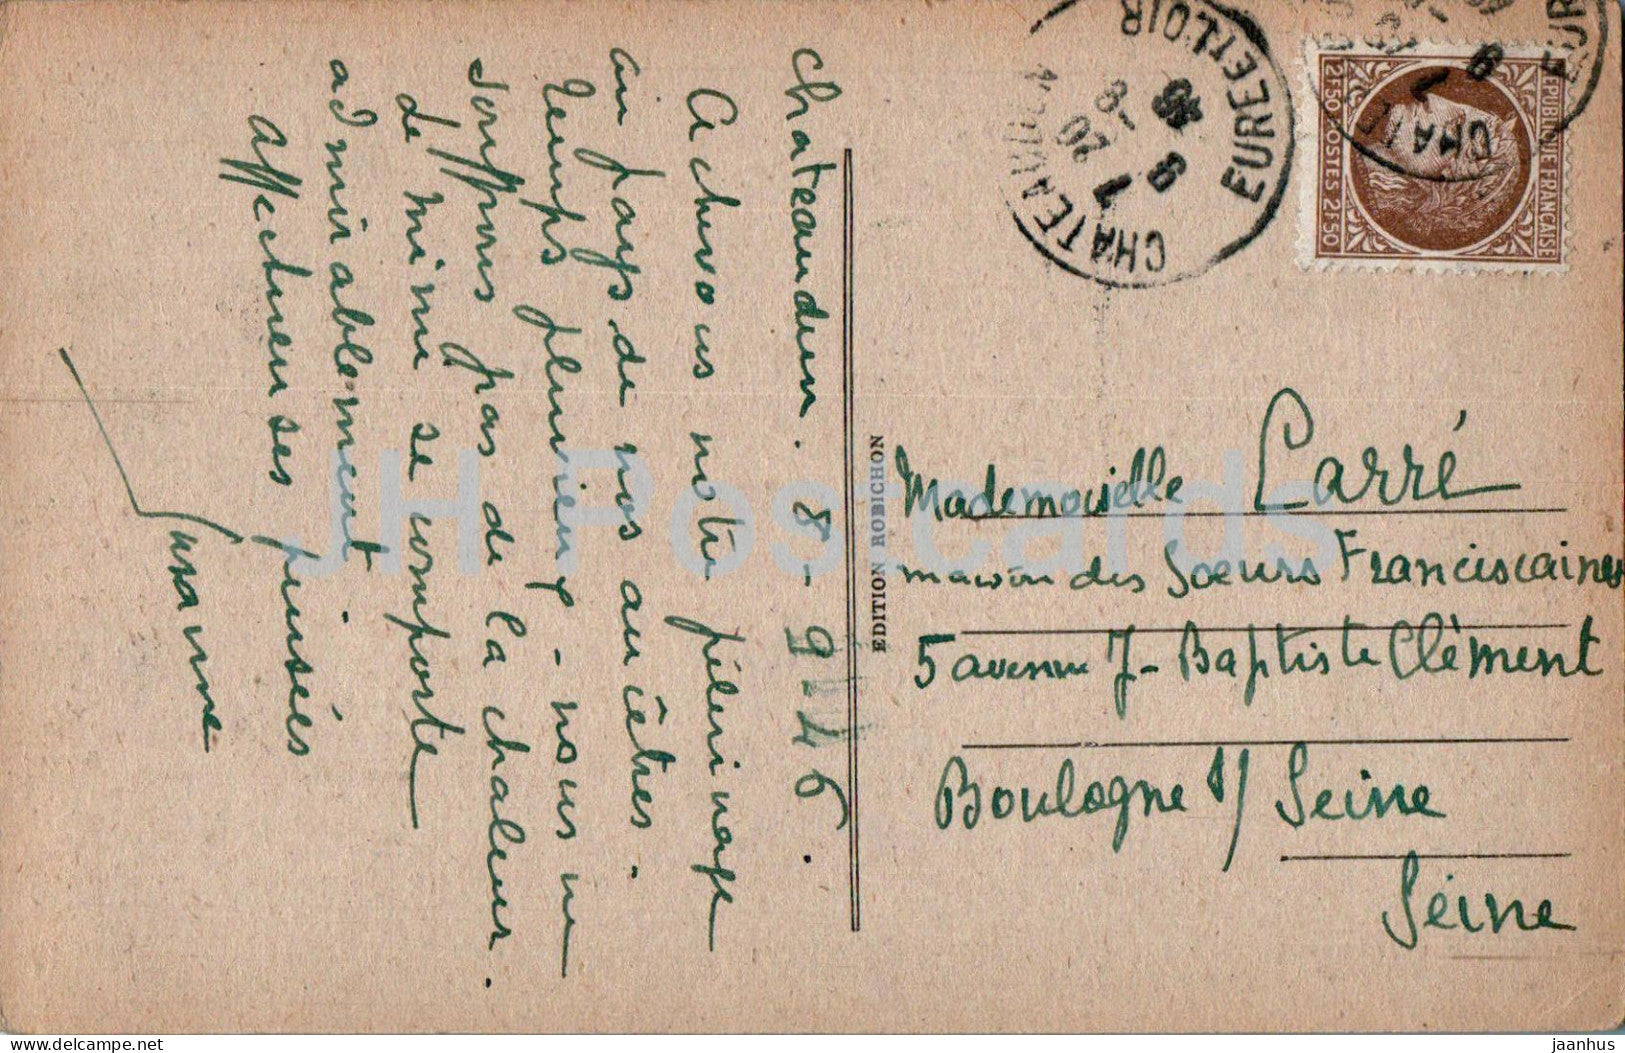 Chateaudun. 8-9-46.
Achevons notre pélerinage
au pays de nos ancêtres.
Temps pluvieux - nous ne
souffrons pas de la chaleur.
de mimi se comporte
admirablement.
Affectueuses pensées
Susanne
EDITION ROBICHON
CHATEAUDUN
EURE ET LOIR
20
REPUBLIQUE FRANÇAISE
2F50 POSTES 2F50
Mademoiselle Carré
maison des Soeurs Franciscaines
5 avenue J-Baptiste Clément
Boulogne s/ Seine
Seine
JH Postcards
jaanhus @ delcampe.net